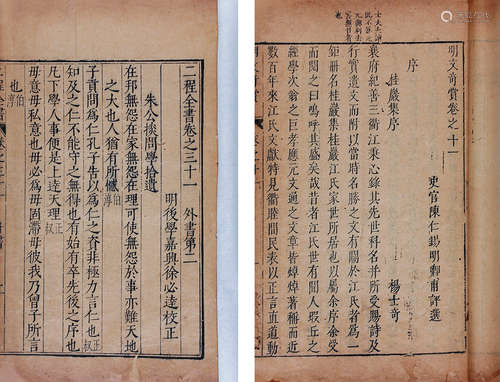 明文奇賞卷之十一
史官陳仁錫明卿甫評選
序
桂巖集序 楊士奇
襄府紀善三衢江秉心錄其先世科名并所受賜詩及
行實遺文而附以當時名勝之文有關於江氏者為一
鉅冊名桂巖集桂巖江氏家世所居也以屬余序余受
而閱之曰嗚呼其盛矣哉昔者江氏世有聞人瑕丘之
經學次翁之巨孝應元文通之文章皆焯焯著稱而近
數百年來江氏文獻特見衢睦間民表以正言直道動
二程全書卷之三十一 外書第二
明後學嘉興徐必達校正
朱公掞問學拾遺
在邦無怨在家無怨在理可使無怨於事亦難天地
之大也人猶有所憾伯淳
子貢問為仁孔子告以為仁之資非極力言仁也正叔
知及之仁不能守之無得也有始有卒先後之序也
凡下學人事便是上達天理正叔
毋意毋私意也毋必為毋固滯毋彼我乃曾子所言
也伯淳